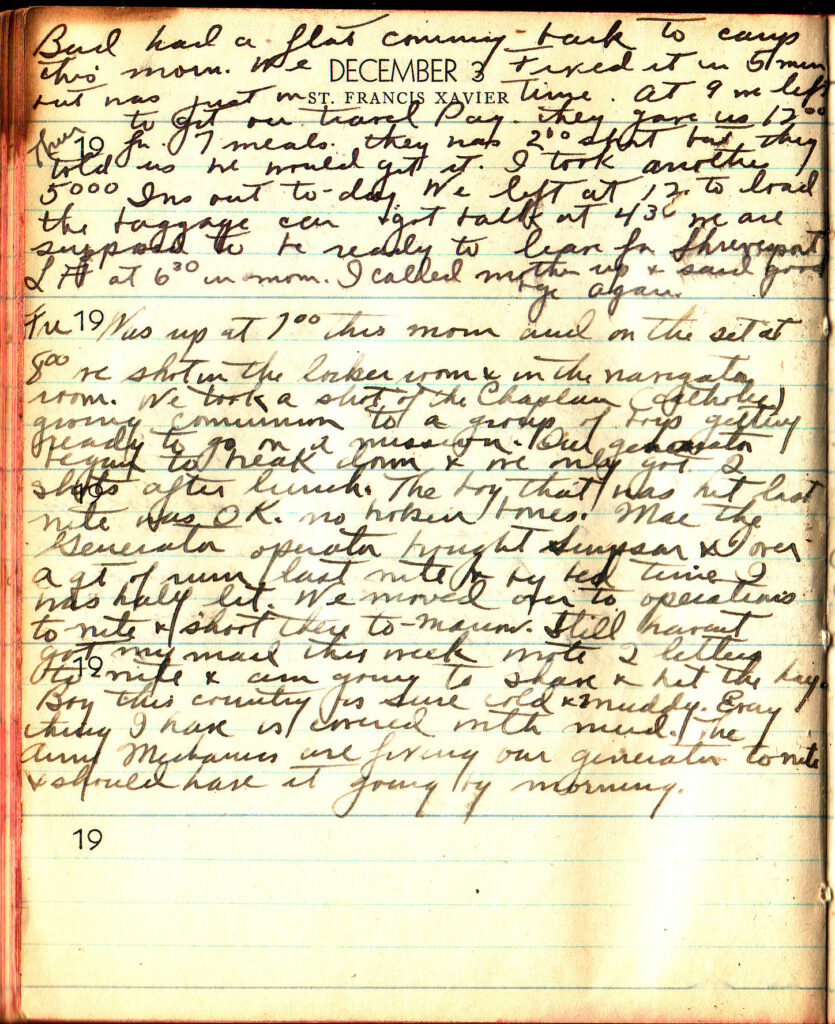 Bud had a flat comming back to camp
this morn. We Fixed it in 5 min
DECEMBER 3
but was just in time. at 9 we left
ST. FRANCIS XAVIER
to get our travel Pay. they gave us 12⁰⁰
Thur 19 for 7 meals. they was 2⁰⁰ short but they
told us we would get it. I took another
5000 Ins out to-day We left at 12 to load
the baggage car & got back at 4³⁰ we are
suppose to be ready to leave for Shreveport
LA at 6³⁰ in morn. I called mother up & said good
bye again.
Fri 19 Was up at 7⁰⁰ this morn and on the set at
8⁰⁰ we shot in the locker room & in the navigator
room. We took a shot of the Chaplain (catholic)
giving comunion to a group of boys getting
ready to go on a mission. Our generator
began to break down & we only got 2
19
shots after lunch. The boy that was hit last
nite was OK. no broken bones. Mac the
Generator operator brought Simpson & I over
a qt of rum last nite & by bed time I
was half lit. We moved over to operations
to nite & shoot there to-morrow. Still havent
got my mail this week wrote 2 letters
19
to nite & am going to shave & hit the hay.
Boy this country is sure cold & muddy. Every
thing I have is covered with mud. The
Army Mechanics are fixing our generator to nite
& should have it going by morning.
19